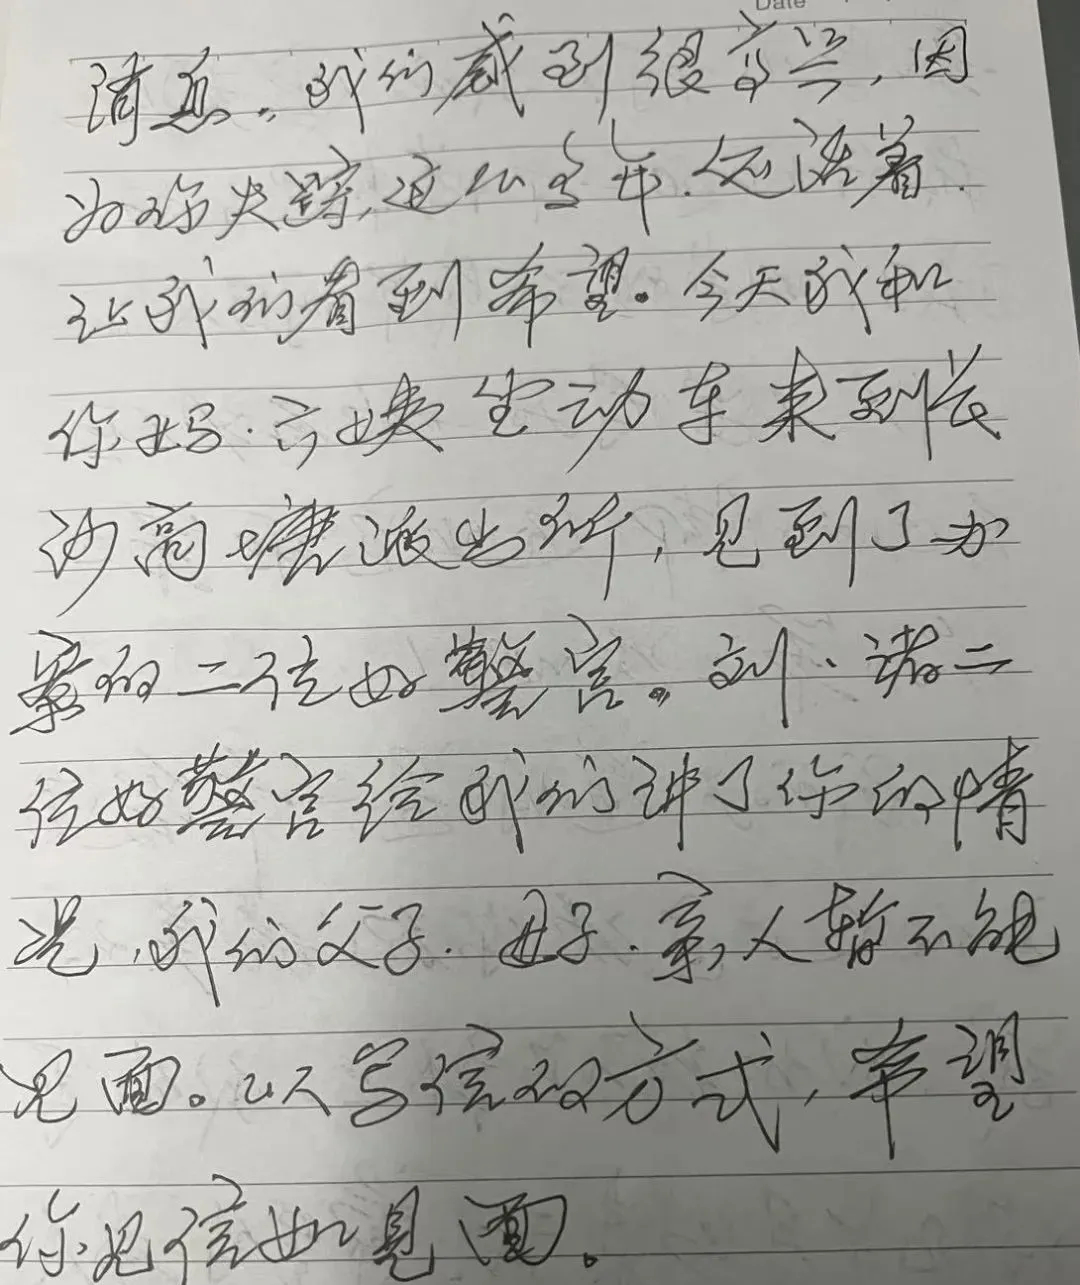 Date
消息。我们感到很高兴，因
为你失踪，这么多年.还活着.
让我们看到希望。今天我和
你妈.六姨坐动车来到长
沙高塘派出所，见到了办
案的二位好警官。刘.诸二
位好警官给我们讲了你的情
况，我们父子.母子.亲人暂不能
见面。以写信的方式，希望
你见信如见面。